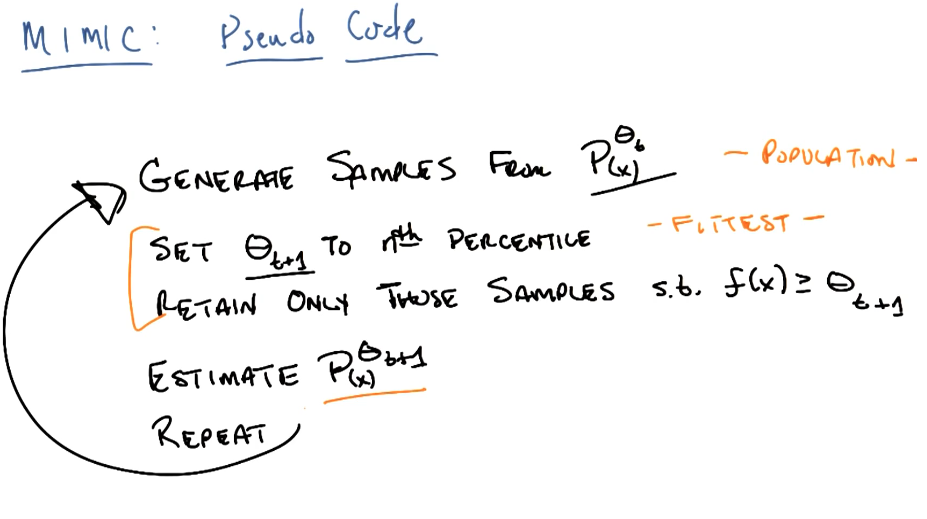 MIMIC: Pseudo Code
GENERATE SAMPLES FROM P^θ_t(x) - POPULATION -
SET θ_t+1 TO nth PERCENTILE - FITTEST -
RETAIN ONLY THOSE SAMPLES s.t. f(x) ≥ θ_t+1
ESTIMATE P^θ_t+1(x)
REPEAT